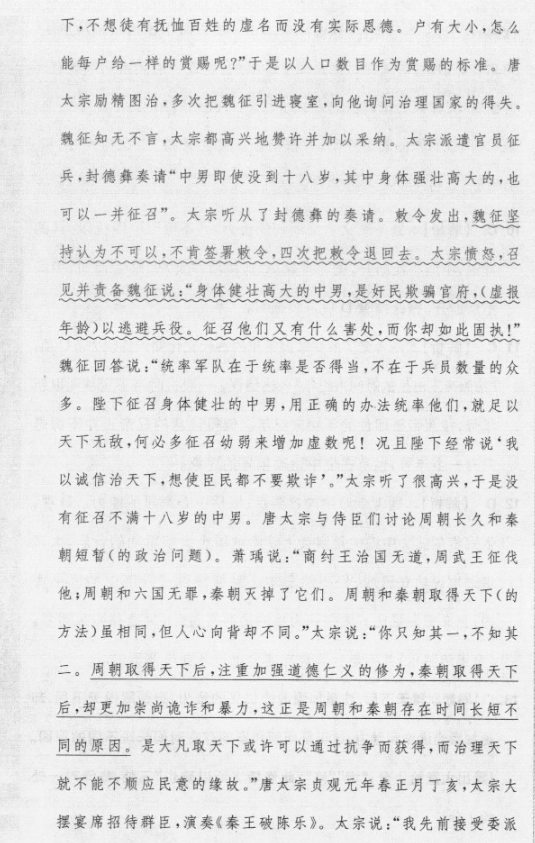 下,不想徒有抚恤百姓的虚名而没有实际恩德。户有大小,怎么
能每户给一样的赏赐呢?”于是以人口数目作为赏赐的标准。唐
太宗励精图治,多次把魏征引进寝室,向他询问治理国家的得失。
魏征知无不言,太宗都高兴地赞许并加以采纳。太宗派遣官员征
兵,封德彝奏请“中男即使没到十八岁,其中身体强壮高大的,也
可以一并征召”。太宗听从了封德彝的奏请。敕令发出,魏征坚
持认为不可以,不肯签署敕令,四次把敕令退回去。太宗愤怒,召
见并责备魏征说:“身体健壮高大的中男,是奸民欺骗官府,(虚报
年龄)以逃避兵役。征召他们又有什么害处,而你却如此固执!”
魏征回答说:“统率军队在于统率是否得当,不在于兵员数量的众
多。陛下征召身体健壮的中男,用正确的办法统率他们,就足以
天下无敌,何必多征召幼弱来增加虚数呢!况且陛下经常说‘我
以诚信治天下,想使臣民都不要欺诈’。”太宗听了很高兴,于是没
有征召不满十八岁的中男。唐太宗与侍臣们讨论周朝长久和秦
朝短暂(的政治问题)。萧瑀说:“商纣王治国无道,周武王征伐
他;周朝和六国无罪,秦朝灭掉了它们。周朝和秦朝取得天下(的
方法)虽相同,但人心向背却不同。”太宗说:“你只知其一,不知其
二。周朝取得天下后,注重加强道德仁义的修为,秦朝取得天下
后,却更加崇尚诡诈和暴力,这正是周朝和秦朝存在时间长短不
同的原因。是大凡取天下或许可以通过抗争而获得,而治理天下
就不能不顺应民意的缘故。”唐太宗贞观元年春正月丁亥,太宗大
摆宴席招待群臣,演奏《秦王破陈乐》。太宗说:“我先前接受委派